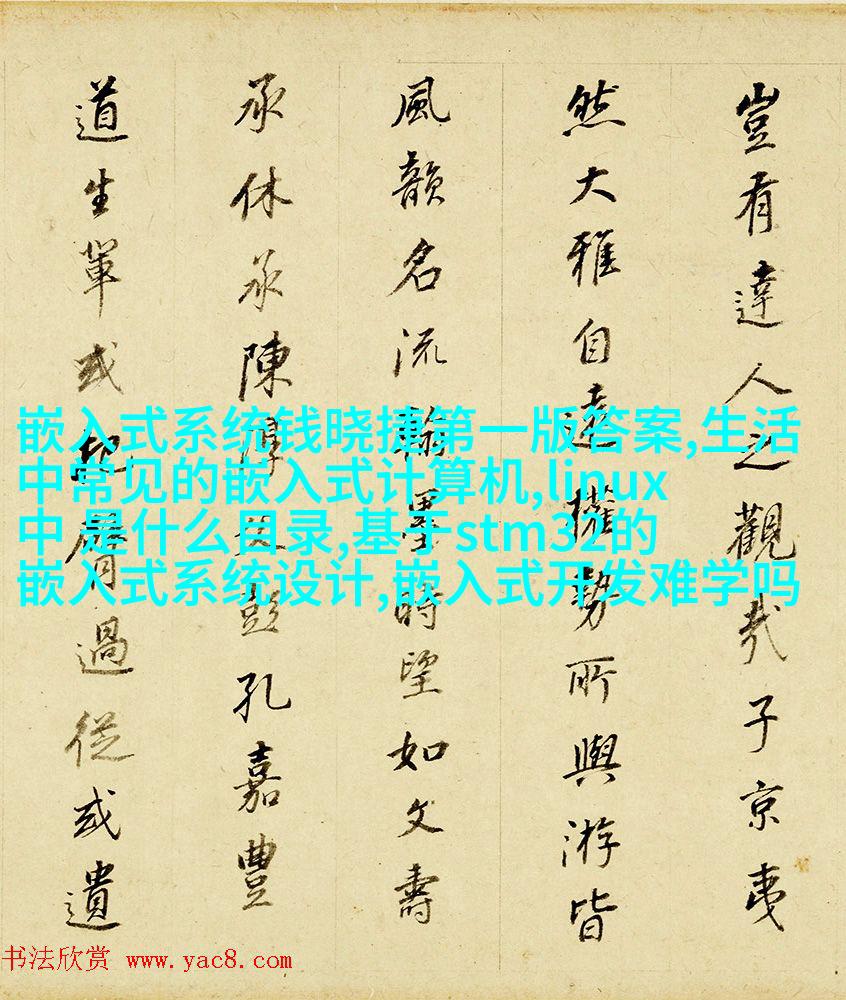 豈有達人之觀哉子京夷
然大雅自遠權勢所與游皆
風韻名流翰墨時望如文壽
承休承陳淳父彭孔嘉豐
道生輩或把臂過從或遺
嵌入式系统钱晓捷第一版答案,生活
中常见的嵌入式计算机,linux
中 是什么目录,基于stm32的
嵌入式系统设计,嵌入式开发难学吗
书法欣赏 www.yac8.com